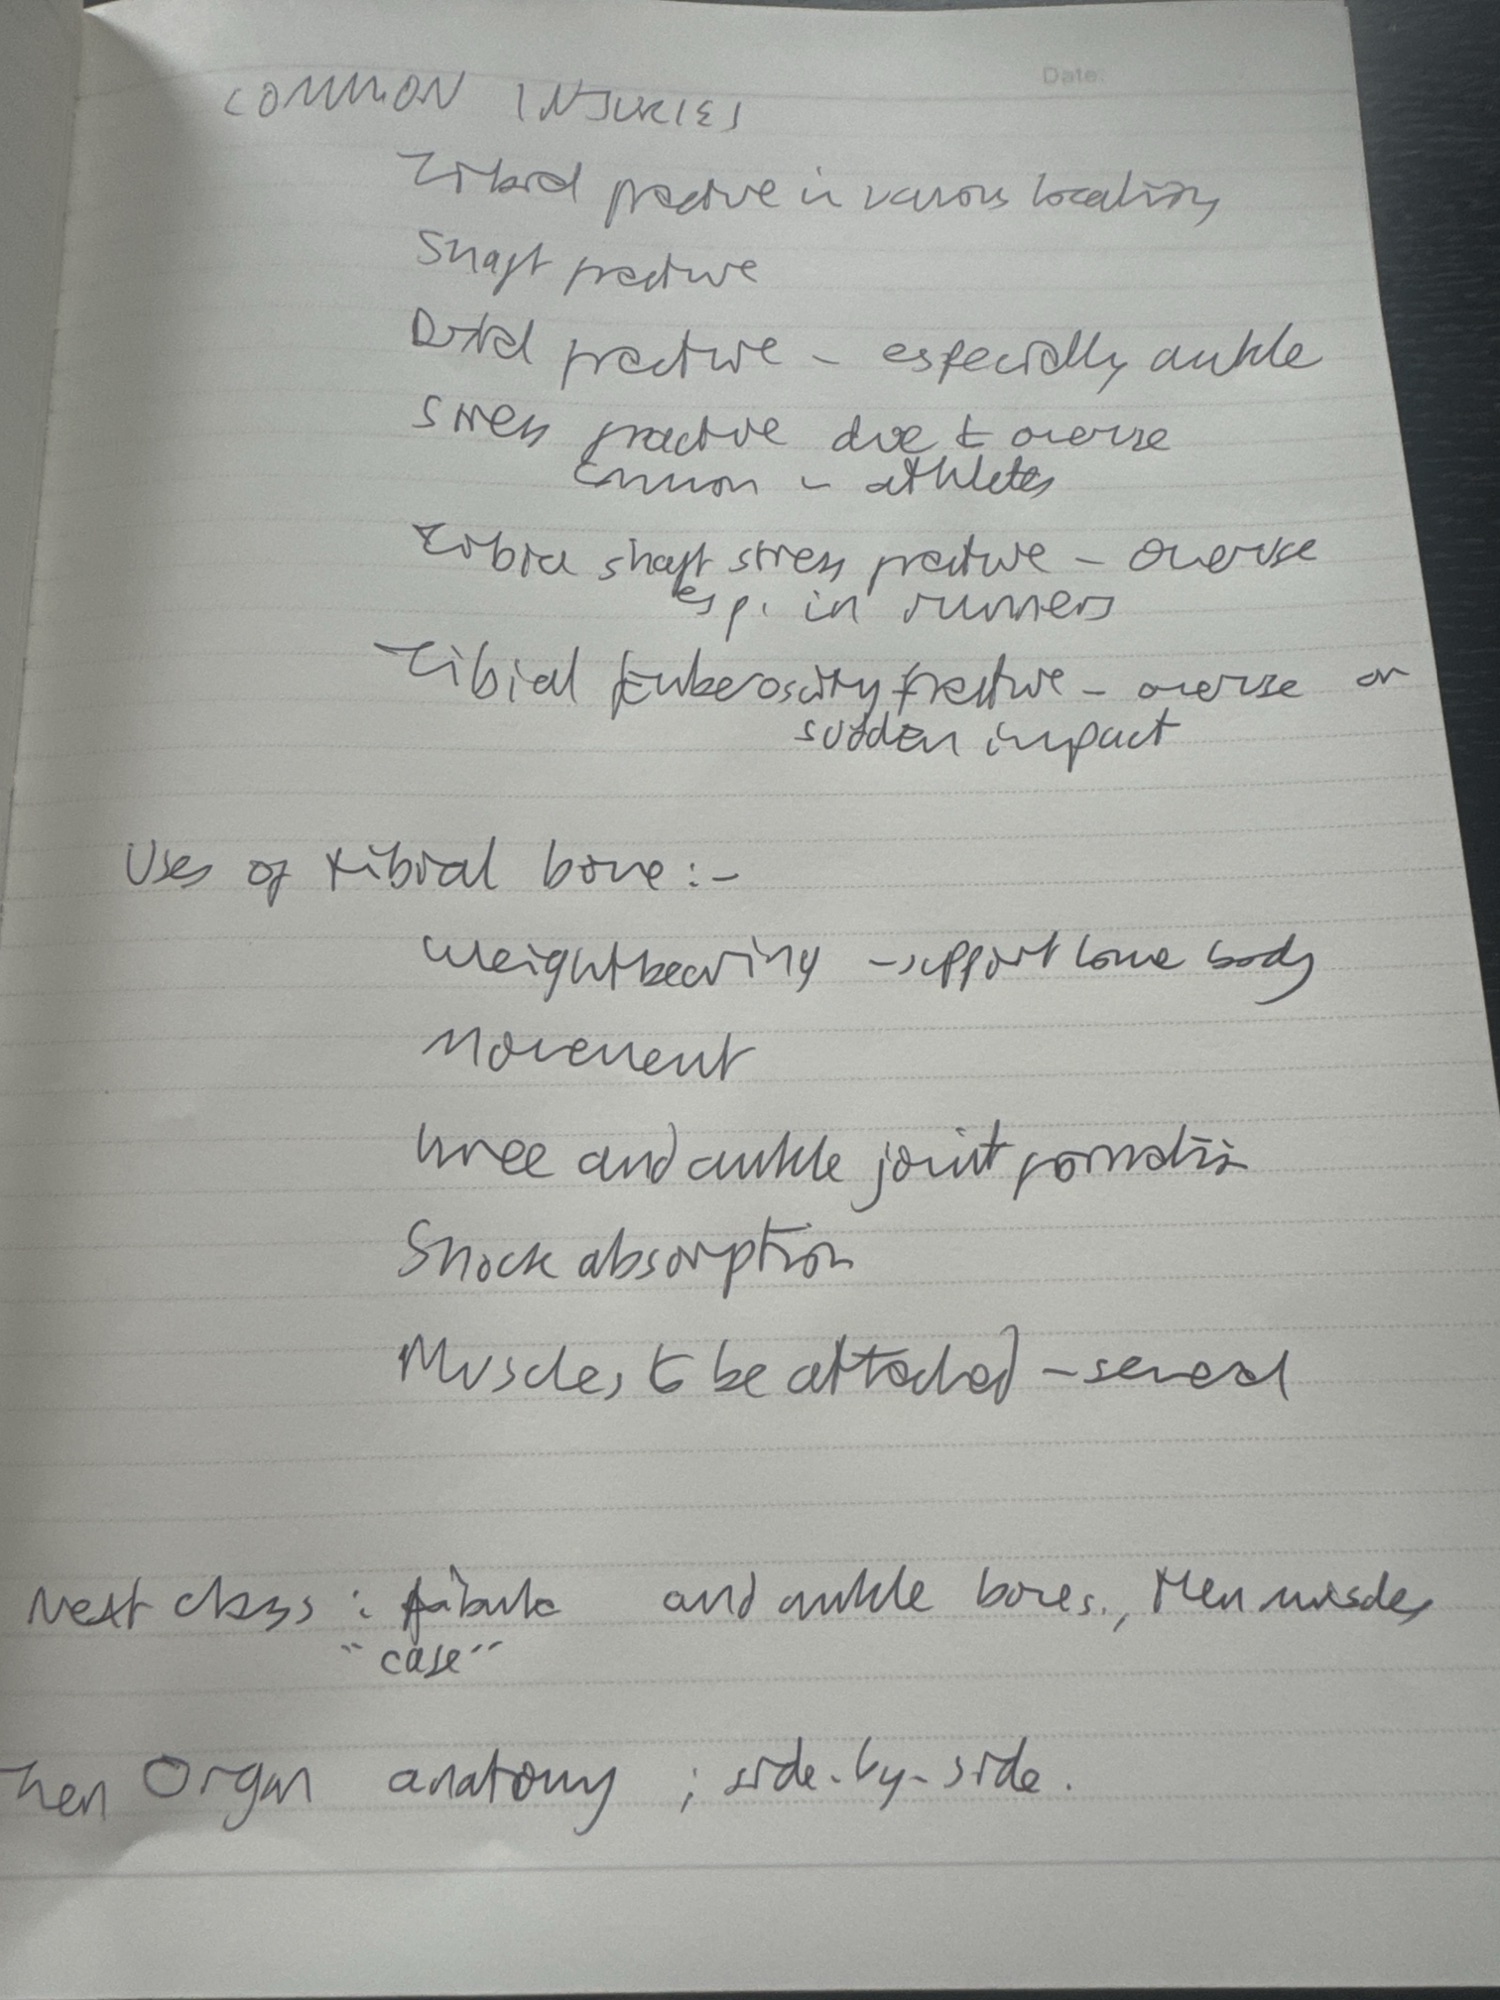 Date:
COMMON INJURIES
Tibial fracture in various locations
Shaft fracture
Distal fracture - especially ankle
Stress fracture due to overuse
common in athletes
Tibia shaft stress fracture - overuse
esp. in runners
Tibial tuberosity fracture - overuse or
sudden impact
Uses of tibial bone:-
Weightbearing - support lower body
Movement
knee and ankle joint formation
Shock absorption
Muscles to be attached - several
Next class : fibula and ankle bones., then muscles
"case"
Then Organ anatomy ; side-by-side.